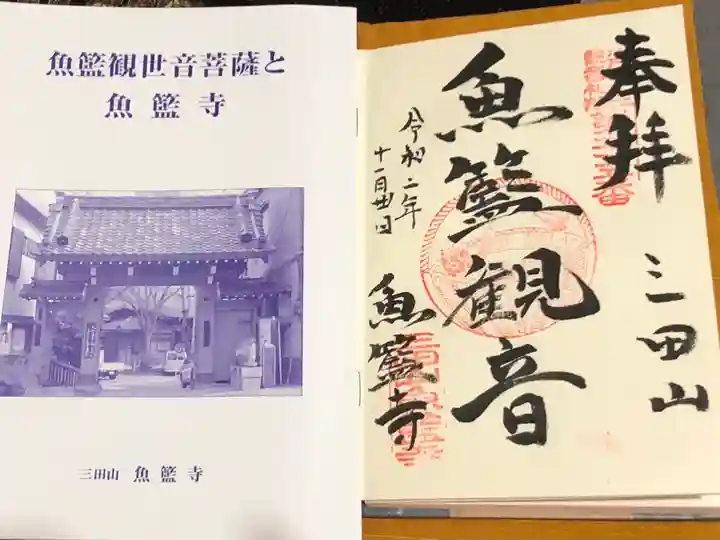 魚籃観世音菩薩と
魚籃寺
三田山 魚籃寺
奉拝
三田山
魚籃観音
令和二年
十一月廿日
魚籃寺